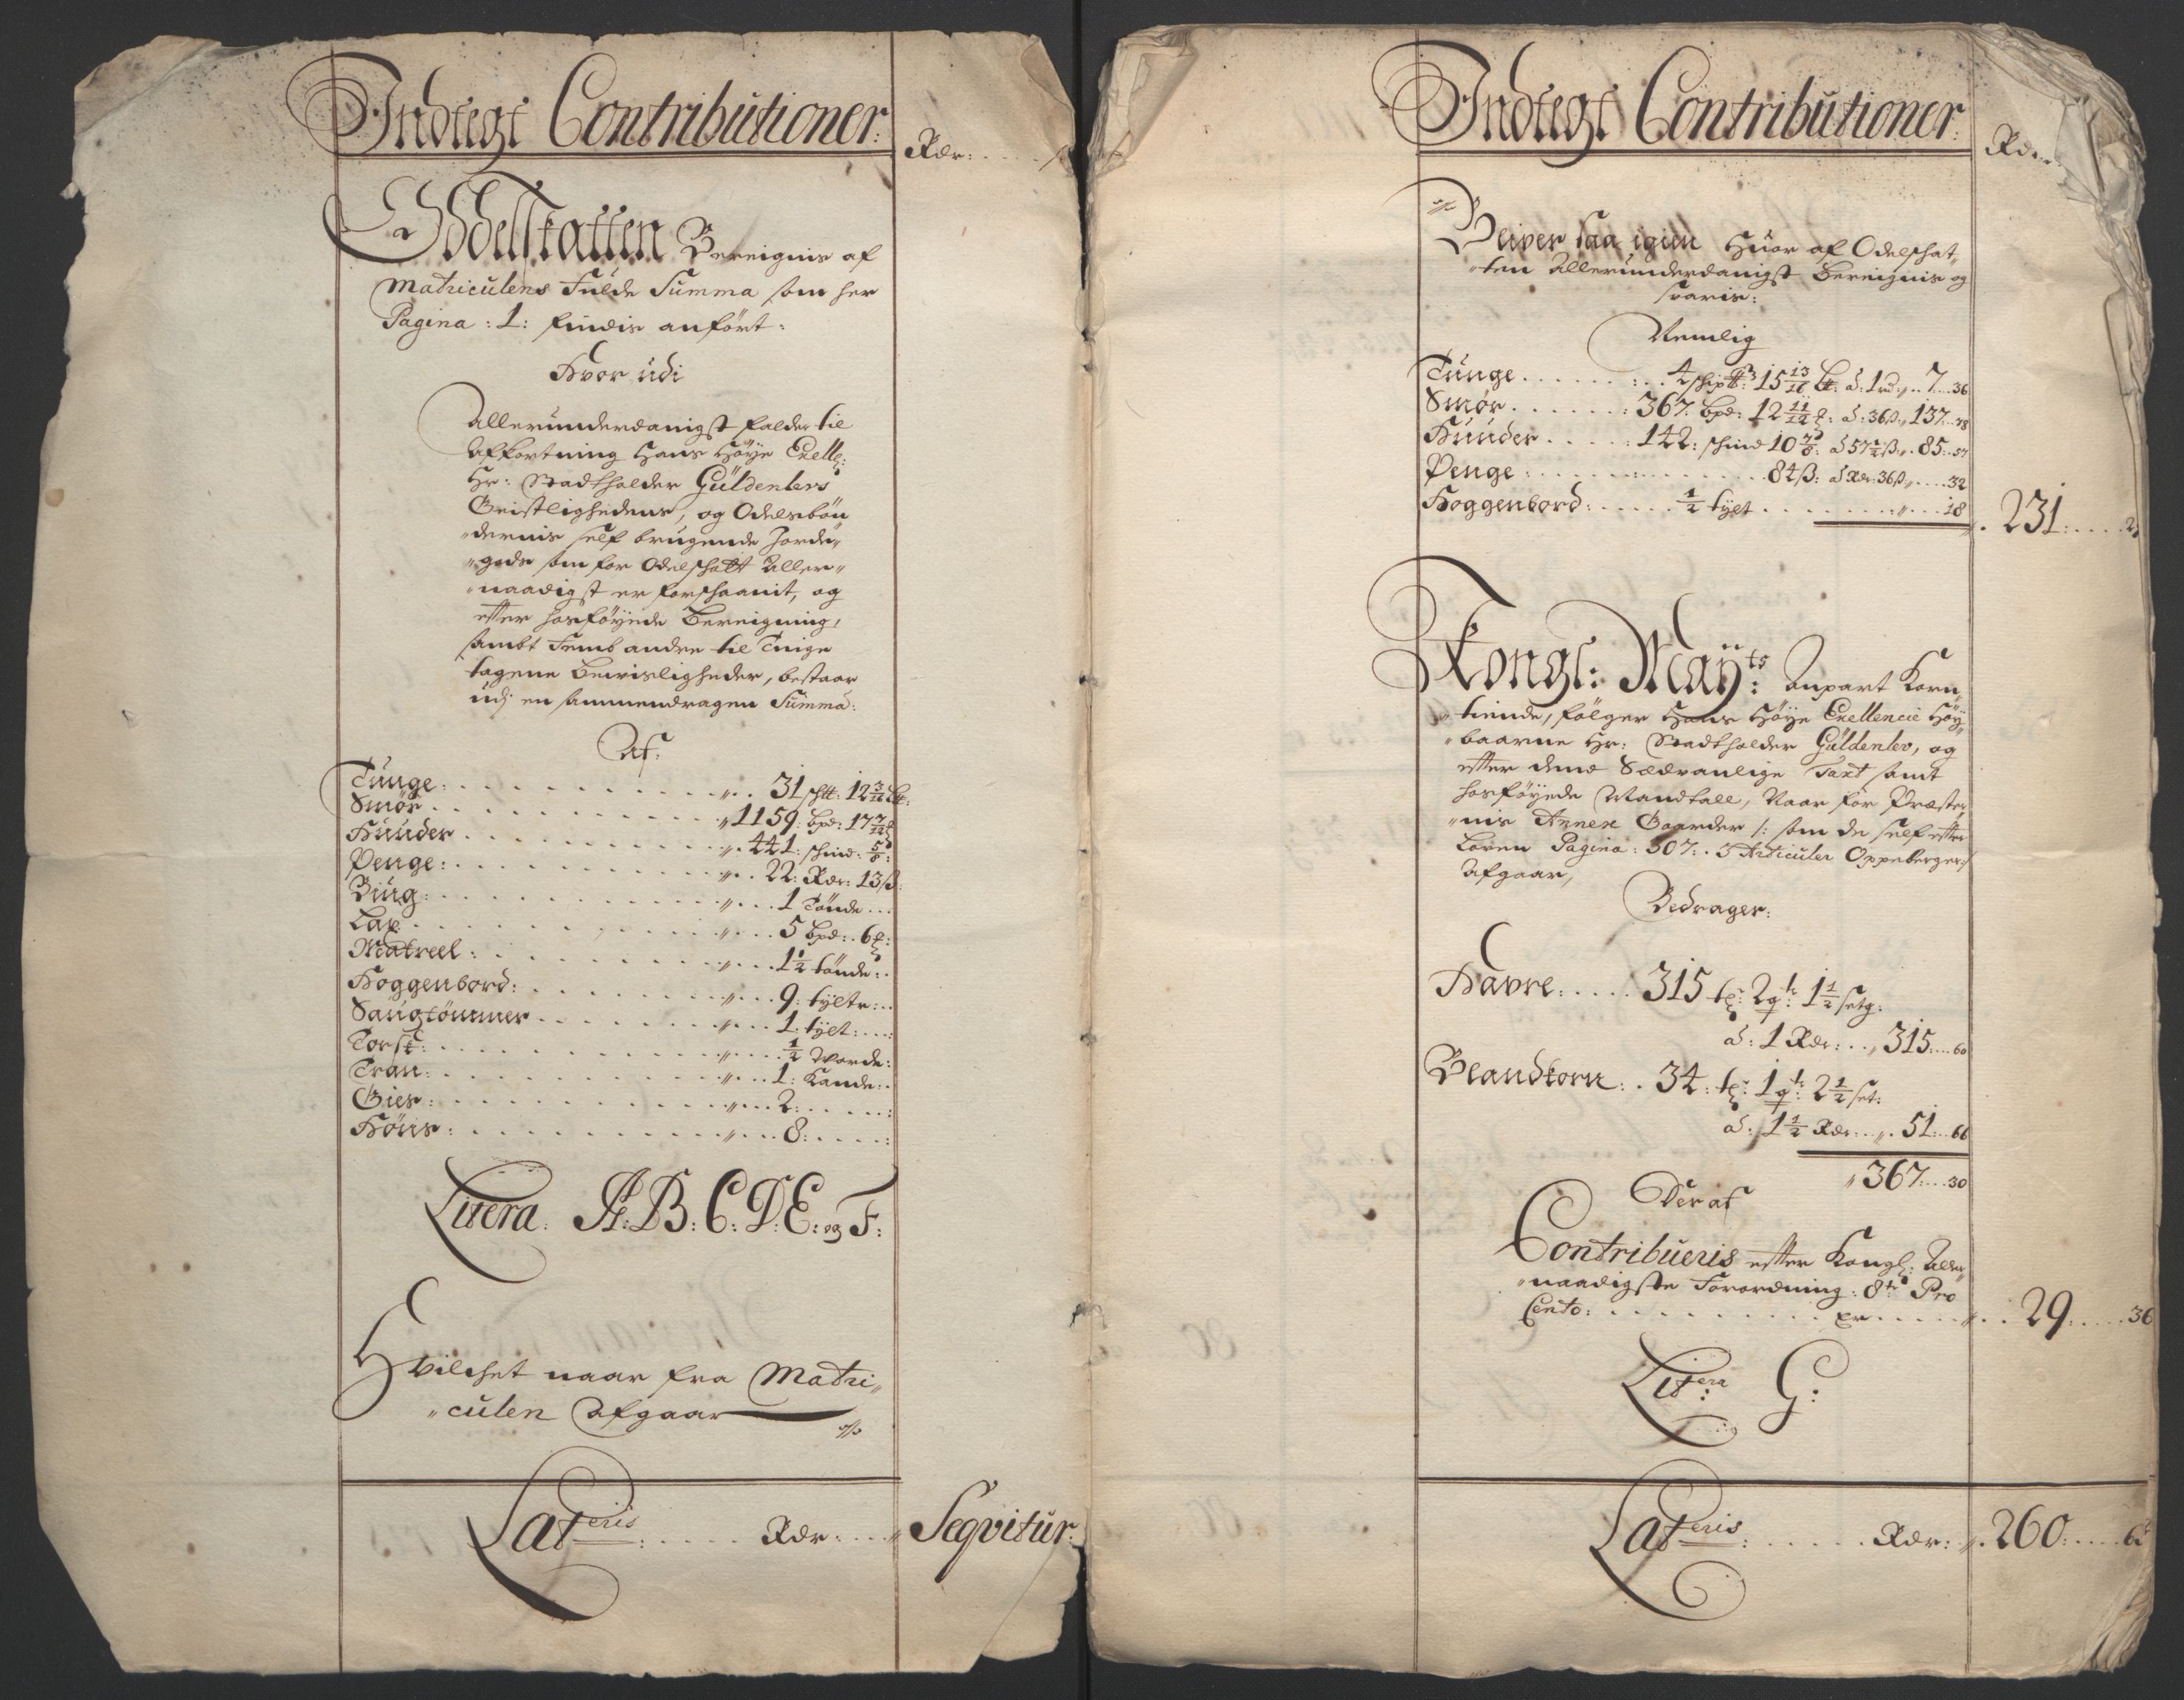 Indtegt Contributioner:
Rdr:
Oddelskatten Bereignis af
Matriculens Fulde Summa som her
Pagina : 1 : findis anført :
Hvor udi
Allerunderdanigst falder til
Afkortning Hans Høye Exelle:
Hr: Stadtholder Güldenlews
Geistlighedens, og Odelsbøn„
„dernis self brugende Jorde„
„gods som for Odelschatt Aller„
„naadigst er forschaanit, og
efter hosføyede Bereigning,
sambt Femb andre til
tagene Bewisligheder, bestaar
udj en sammendragen Summa:
Af.
Tunge: . . . „ . . 31 schtt: 12 3/16 Ltt:
Smør . . . „ 1159: bpd: 17 7/12 ℔
Huuder . . . „ . 441: schind: 5/8:
Penge: . . . „ . . 22: Rdr: 13 ß:
Biug: . . . „ . . . 1 Tønde . . .
Lax: . . . „ . . . 5 bpd: . 6 ℔:
Matreel: . . . „ . . . 1 1/2 tønde: .
Hoggenbord: . . . „ . . . 9: tylte: . .
Saugtømmer . . . „ . . . 1: tylt: . . .
Torsk: . . . „ . . . 1/2 Worde:
Tran: . . . „ . . . 1: Kande: .
Gies: . . . „ . . . 2: . . . . :
Høns: . . . „ . . . 8: . . . . :
Litera: A: B: C: D: E: og F:
Hvilchet naar fra Matri„
„culen Afgaar
Lateris: . . . . Rdr: . . „ Seqvitur:
Indtegt Contributioner:
Rdr
Bliver saa igien Huor af Odelschat„
„ten Allerunderdanigst Bereignis og
svaris:
Nemlig
Tunge . . . : . . 4 schiptt: 15 13/16 Ltt: à: 1 rd: „ . . 7 . . . 36
Smør . . . : 367: bpd: 12 11/12 ℔: à: 36 ß: „ 137 . . . 78
Huuder . . . : 142: schind 10 7/8: à 57 1/2 ß: „ . 85: . . 57
Penge: . . . 84 ß: à Rdr: 36 ß: „ . . . . 32
Hoggenbord: . . . 1/2 tylt . . . „ . . . 18
„ . 231: . . . . 2
Kongl: Mayts: Anpart Korn„
„tiende, følger Hans Høye Exellencie Høy„
„baarne Hr: Stadtholder Güldenlew, og
efter dend Sædvanlige Taxt samt
hosføyede Mandtall, Naar for Præster„
„nis Annex Gaarder /: som de self efter
Loven Pagina: 307: . 5 Articuler Oppeberger:/
Afgaar,
Bedrager:
Havre: . . . . 315 tr: 2 qr: 1 1/2 setg:
à: 1 Rdr: . . „ 315: . . . 60
Blandkorn: . 34: tr: 1 qr: 2 1/2 set:
à: 1 1/2 Rdr: . . „ . 51: . . 66
„ 367: . . . 30
Der af
Contribueris efter Kongl: Aller„
„naadigste Forordning: 8te Pro
Cento: . . . er . . . „ . . 29: . . . . 36
Litera: G:
Lateris: . . . . . Rdr: „ . 260: . . . .